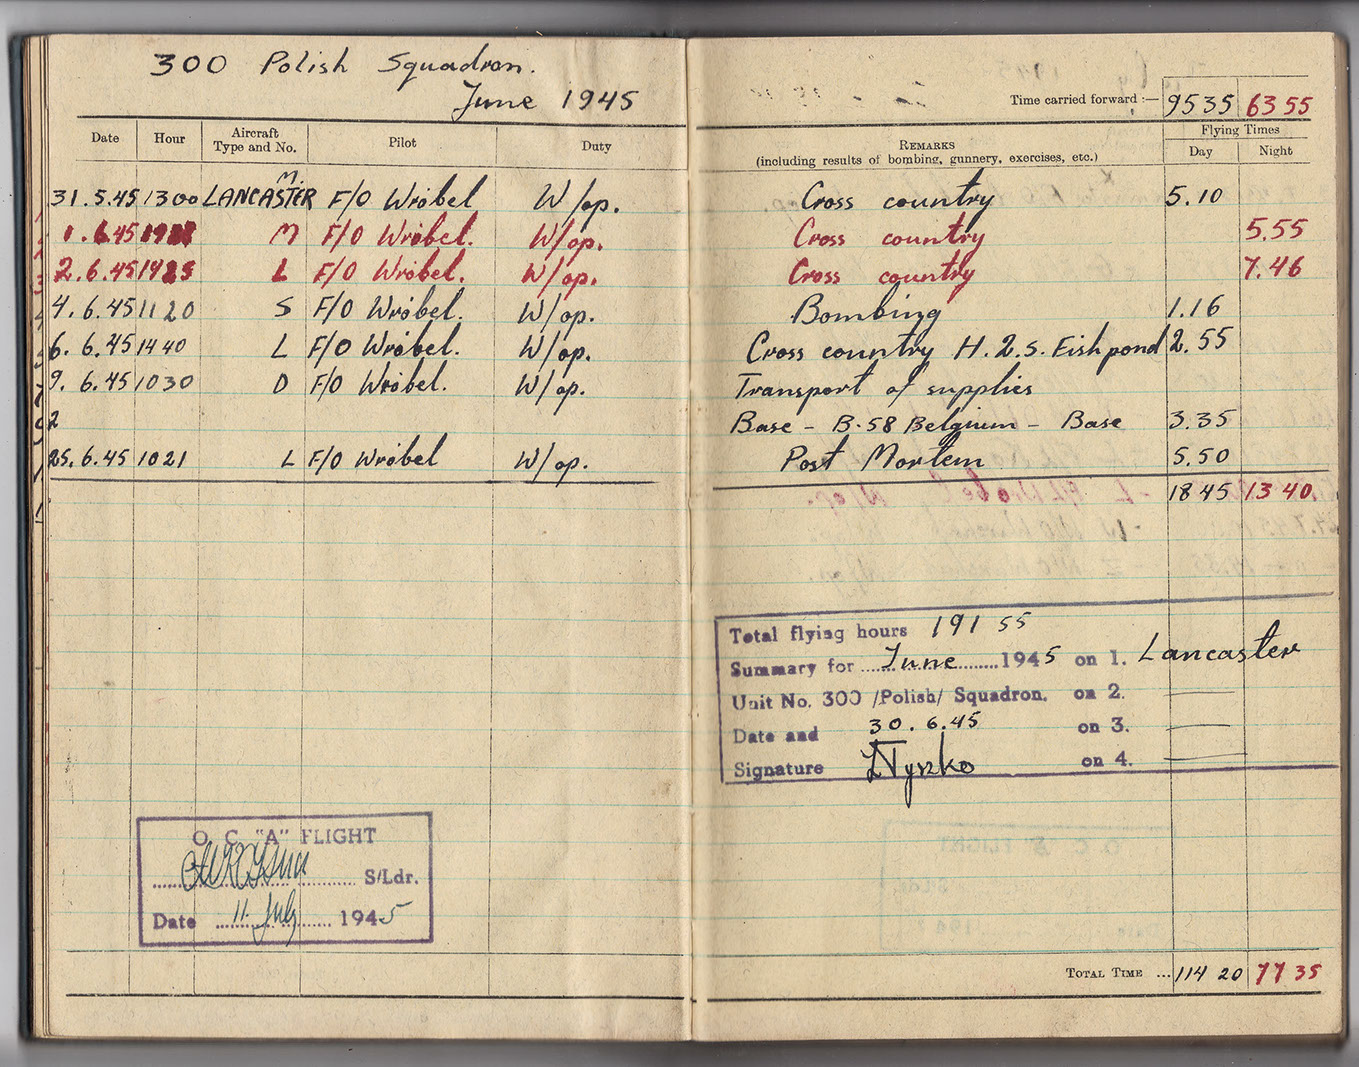 300 Polish Squadron.
June 1945
Time carried forward :— 95 35 63 55
Date Hour Aircraft Type and No. Pilot Duty REMARKS (including results of bombing, gunnery, exercises, etc.) Flying Times Day Night
31. 5. 45 1300 LANCASTER M. F/O Wróbel W/op. Cross country 5.10
1. 6. 45 M F/O Wróbel. W/op. Cross country 5.55
2. 6. 45 1925 L F/O Wróbel. W/op. Cross country 7.46
4. 6. 45 1120 S F/O Wróbel. W/op. Bombing 1.16
6. 6. 45 1440 L F/O Wróbel. W/op. Cross country H.2.S. Fishpond 2.55
9. 6. 45 1030 D F/O Wróbel. W/op. Transport of supplies
2 Base – B-58 Belgium – Base 3.35
25. 6. 45 1021 L F/O Wróbel W/op. Post Mortem 5.50
18 45 13 40
Total flying hours 191 55
Summary for June 1945 on 1. Lancaster
Unit No. 300 /Polish/ Squadron. on 2. —
Date and 30. 6. 45 on 3. —
Signature on 4. —
O. C. "A" FLIGHT
S/Ldr.
Date 11. July 1945
TOTAL TIME ... 114 20 77 35